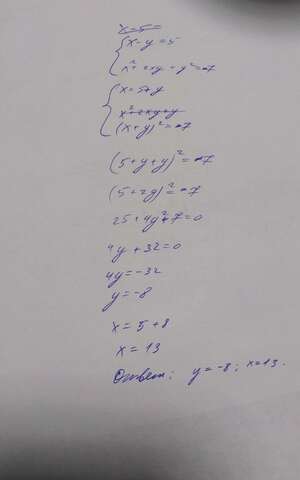 x=5=
x-y=5
x²+2xy+y²=-7
x=5+y
x²+2xy+y
(x+y)²=-7
(5+y+y)²=-7
(5+2y)²=-7
25+4y²+7=0
4y+32=0
4y=-32
y=-8
x=5+8
x=13
Ответ: y=-8; x=13.